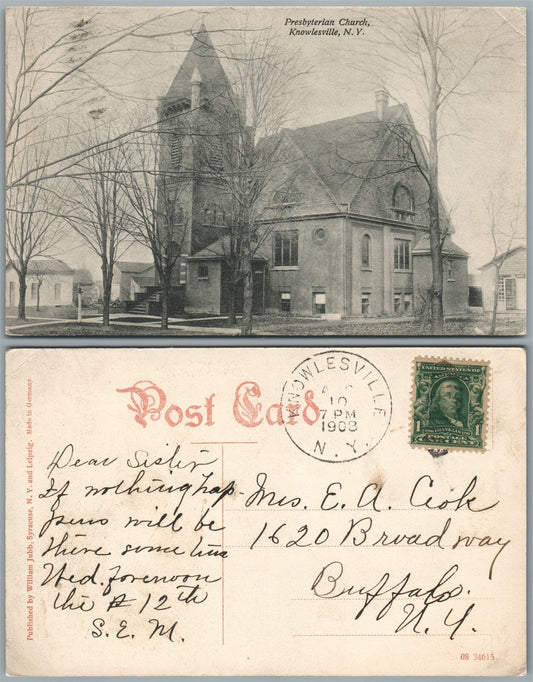 Presbyterian Church,
Knowlesville, N. Y.
Post Card
KNOWLESVILLE
10
7 PM
1908
N. Y.
UNITED STATES OF AMERICA
1 1
Dear Sister
If nothing hap-
pens will be
there some time
Wed. forenoon
the 12th
S. E. M.
Mrs. E. A. Cook
1620 Broadway
Buffalo.
N. Y.
Published by William Jubb, Syracuse, N. Y. and Leipzig. Made in Germany
08 34615